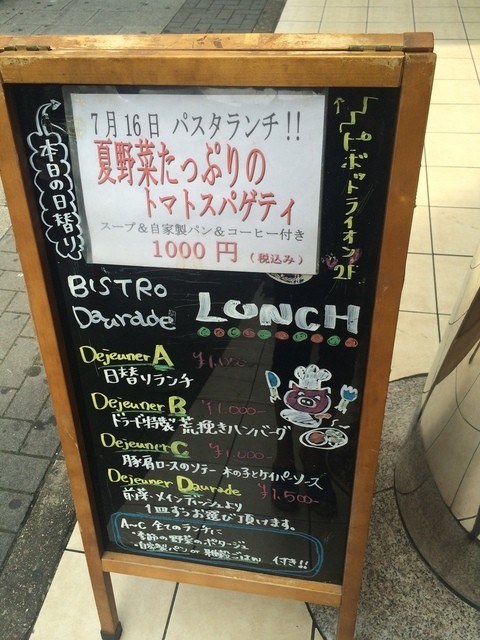 7月16日 パスタランチ!!
夏野菜たっぷりの
トマトスパゲティ
スープ&自家製パン&コーヒー付き
1000円(税込み)
本日の日替り
ピボットライオン2F
BISTRO
Daurade
LUNCH
Dejeuner A
日替りランチ
Dejeuner B ¥1,000-
ドラード特製 荒挽きハンバーグ
Dejeuner C
豚肩ロースのソテー 木の子とケイパーソース
Dejeuner Daurade ¥1,500-
前菜・メインディッシュより
1皿ずつお選び頂けます。
A~C 全てのランチに
・季節の野菜のポタージュ
・自家製パン or 雑穀ごはん 付き!!